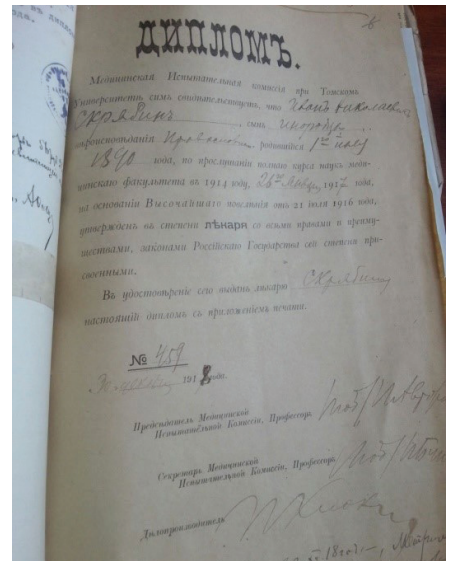 ДИПЛОМЪ.
Медицинская Испытательная комиссія при Томскомъ
Университетѣ симъ свидѣтельствуетъ, что Иванъ Николаевичъ
Скрябинъ, сынъ инородца,
вѣроисповѣданія Православн., родившійся 1го мая
1890 года, по прослушаніи полнаго курса наукъ меди-
цинскаго факультета въ 1914 году, 26го 1917 года,
на основаніи Высочайшаго повелѣнія отъ 21 іюля 1916 года,
утвержденъ въ степени лѣкаря со всѣми правами и преиму-
ществами, законами Россійскаго Государства сей степени при-
своенными.
Въ удостовѣреніе сего выданъ лѣкарю Скрябину
настоящій дипломъ съ приложеніемъ печати.
№ 459
1918 года.
Предсѣдатель Медицинской
Испытательной Комиссіи, Профессоръ
Секретарь Медицинской
Испытательной Комиссіи, Профессоръ
Дѣлопроизводитель